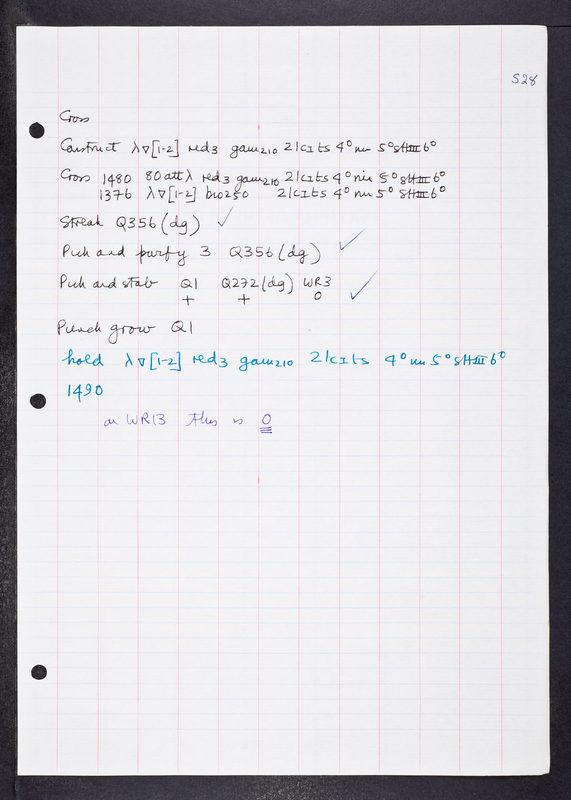 S28
Cross
Construct λ∇[1-2] red3 gam210 21cIts 4° nin 5° sHIII 6°
Cross 1480 80att λ red3 gam210 21cIts 4° nin 5° sHIII 6°
1376 λ∇[1-2] bio250 21cIts 4° nin 5° SHIII 6°
Streak Q356 (dg) ✓
Pick and purify 3 Q356 (dg) ✓
Pick and stab Q1 Q272 (dg) WR3 ✓
+ + 0
Punch grow Q1
hold λ∇[1-2] red3 gam210 21cIts 4° nin 5° sHIII 6°
1490
on WR13 this is 0